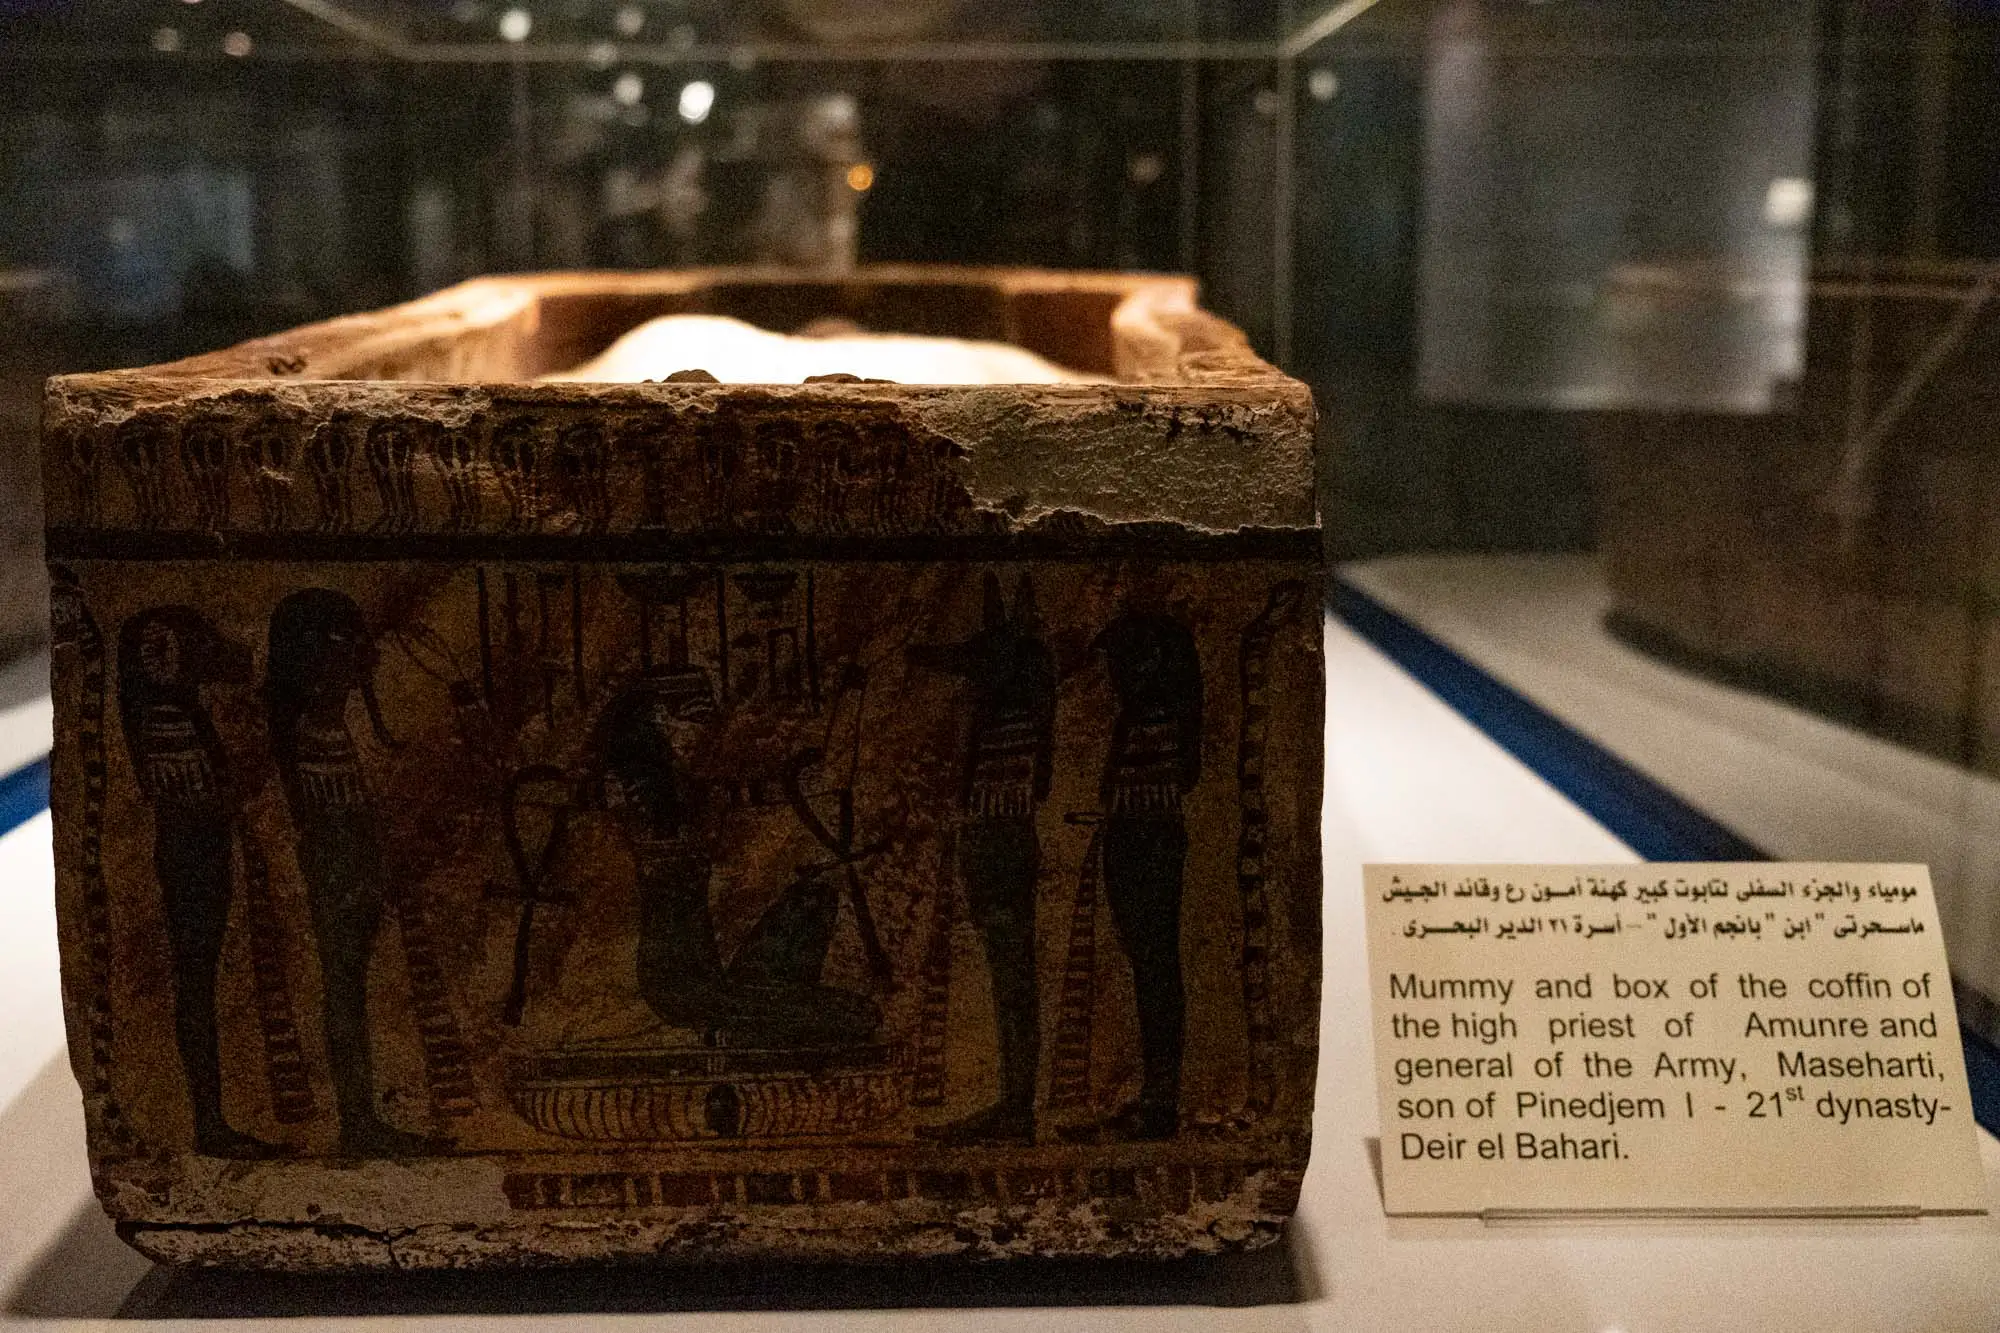 مومياء والجزء السفلى لتابوت كبير كهنة أمون رع وقائد الجيش
ماسحرتى " ابن " بانجم الأول " – أسرة ٢١ الدير البحرى .
Mummy and box of the coffin of
the high priest of Amunre and
general of the Army, Maseharti,
son of Pinedjem I - 21st dynasty-
Deir el Bahari.